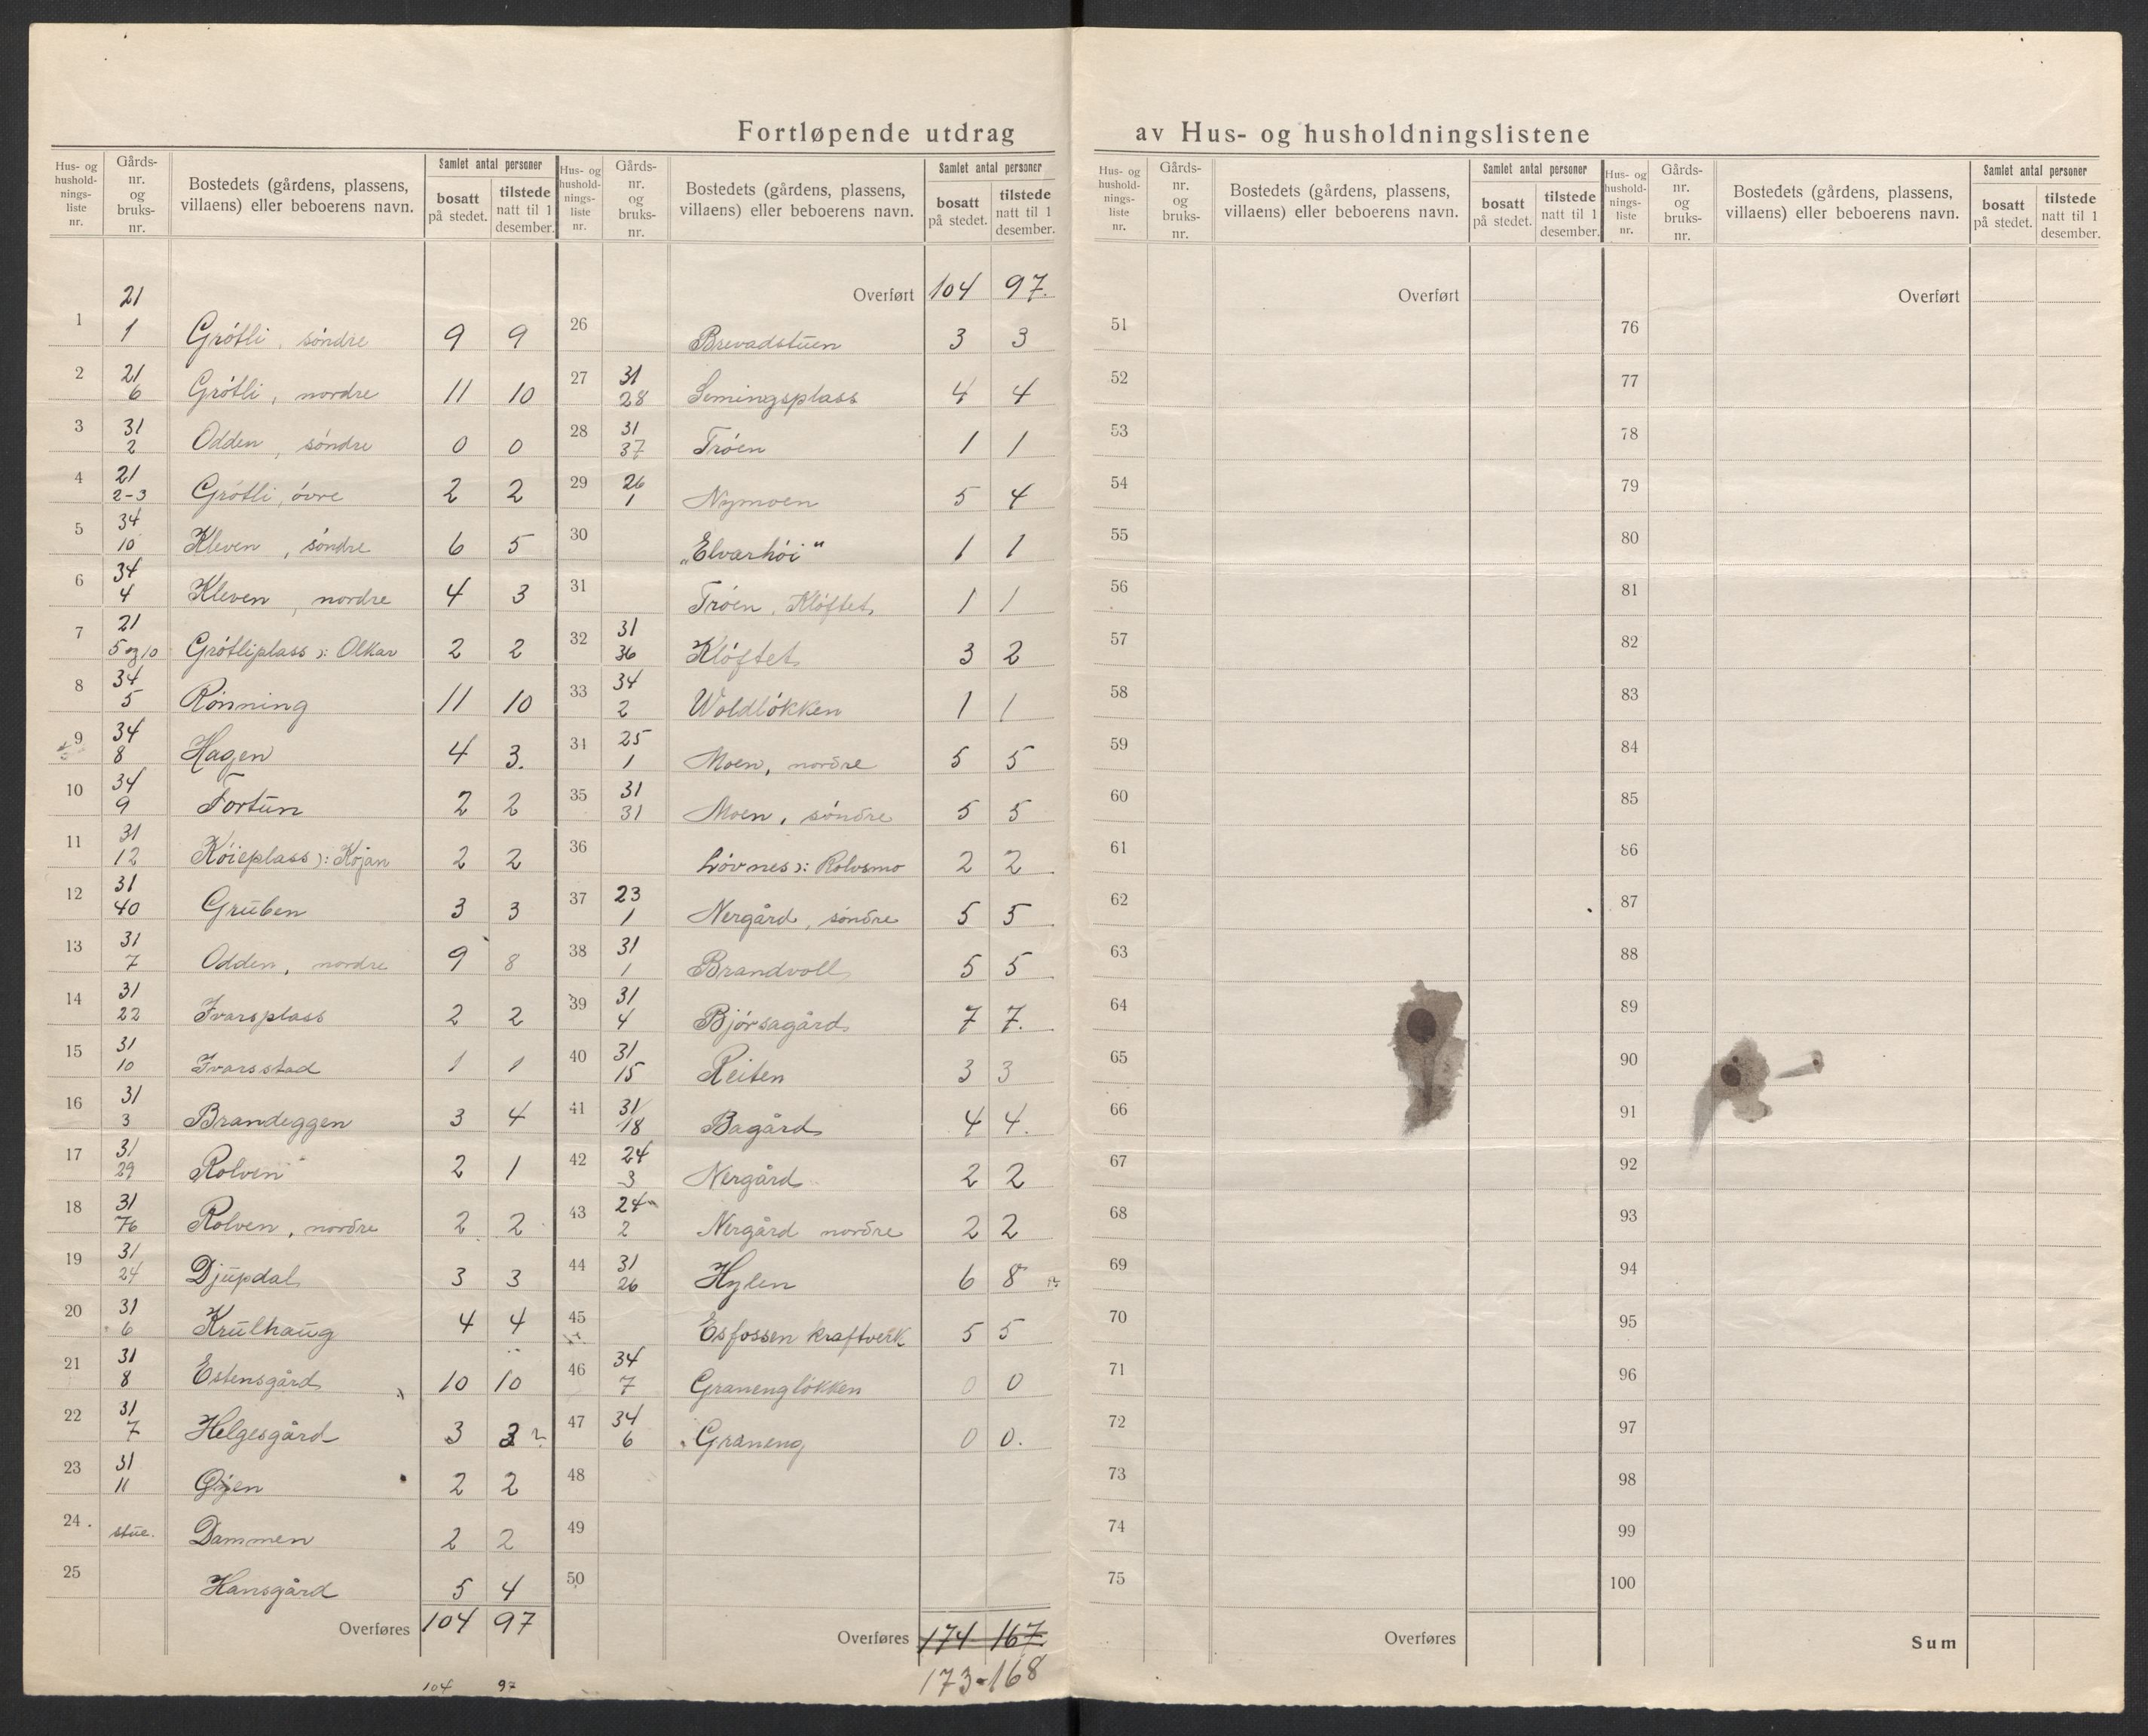 Fortløpende utdrag av Hus- og husholdningslistene
Hus- og husholdnings-liste nr. | Gårds-nr. og bruks-nr. | Bostedets (gårdens, plassens, villaens) eller beboerens navn. | Samlet antal personer bosatt på stedet. | tilstede natt til 1 desember.
1 21/1 Grötli, söndre 9 9
2 21/6 Grötli, nordre 11 10
3 31/2 Odden, söndre 0 0
4 21/2-3 Grötli, övre 2 2
5 34/10 Kleven, söndre 6 5
6 34/4 Kleven, nordre 4 3
7 21/5 og 10 Grötliplass ): Olkar 2 2
8 34/5 Rönning 11 10
9 34/8 Hagen 4 3.
10 34/9 Fortun 2 2
11 31/12 Köieplass ): Kojan 2 2
12 31/40 Gruben 3 3
13 31/7 Odden, nordre 9 8
14 31/22 Ivarsplass 2 2
15 31/10 Ivarsstad 1 1
16 31/3 Brandeggen 3 4
17 31/29 Rolven 2 1
18 31/76 Rolven, nordre 2 2
19 31/24 Djupdal 3 3
20 31/6 Krulhaug 4 4
21 31/8 Estensgård 10 10
22 31/7 Helgesgård 3 3
23 31/11 Öyen 2 2
24 stue. Dammen 2 2
25 Hansgård 5 4
Overføres 104 97
104 97
Hus- og husholdnings-liste nr. | Gårds-nr. og bruks-nr. | Bostedets (gårdens, plassens, villaens) eller beboerens navn. | Samlet antal personer bosatt på stedet. | tilstede natt til 1 desember.
Overført 104 97.
26 Brevadstuen 3 3
27 31/28 Semingsplass 4 4
28 31/37 Tröen 1 1
29 26/1 Nymoen 5 4
30 „Elvarhöi“ 1 1
31 Tröen, Klöftet 1 1
32 31/36 Klöftet 3 2
33 34/2 Woldlökken 1 1
31 25/1 Moen, nordre 5 5
35 31/31 Moen, söndre 5 5
36 Lövnes ): Rolvsmo 2 2
37 23/1 Nergård, söndre 5 5
38 31/1 Brandvoll 5 5
39 31/4 Bjørsagård 7 7.
40 31/15 Reiten 3 3
41 31/18 Bagård 4 4.
42 24/3 Nergård 2 2
43 24/2 Nergård nordre 2 2
44 31/26 Hylen 6 8
45 Esfossen kraftverk 5 5
46 34/7 Graneng lökken 0 0
47 34/6 Graneng 0 0.
48
49
50
Overføres 174 167.
173-168
Hus- og husholdnings-liste nr. | Gårds-nr. og bruks-nr. | Bostedets (gårdens, plassens, villaens) eller beboerens navn. | Samlet antal personer bosatt på stedet. | tilstede natt til 1 desember.
Overført
51
52
53
54
55
56
57
58
59
60
61
62
63
64
65
66
67
68
69
70
71
72
73
74
75
Overføres
Hus- og husholdnings-liste nr. | Gårds-nr. og bruks-nr. | Bostedets (gårdens, plassens, villaens) eller beboerens navn. | Samlet antal personer bosatt på stedet. | tilstede natt til 1 desember.
Overført
76
77
78
79
80
81
82
83
84
85
86
87
88
89
90
91
92
93
94
95
96
97
98
99
100
Sum